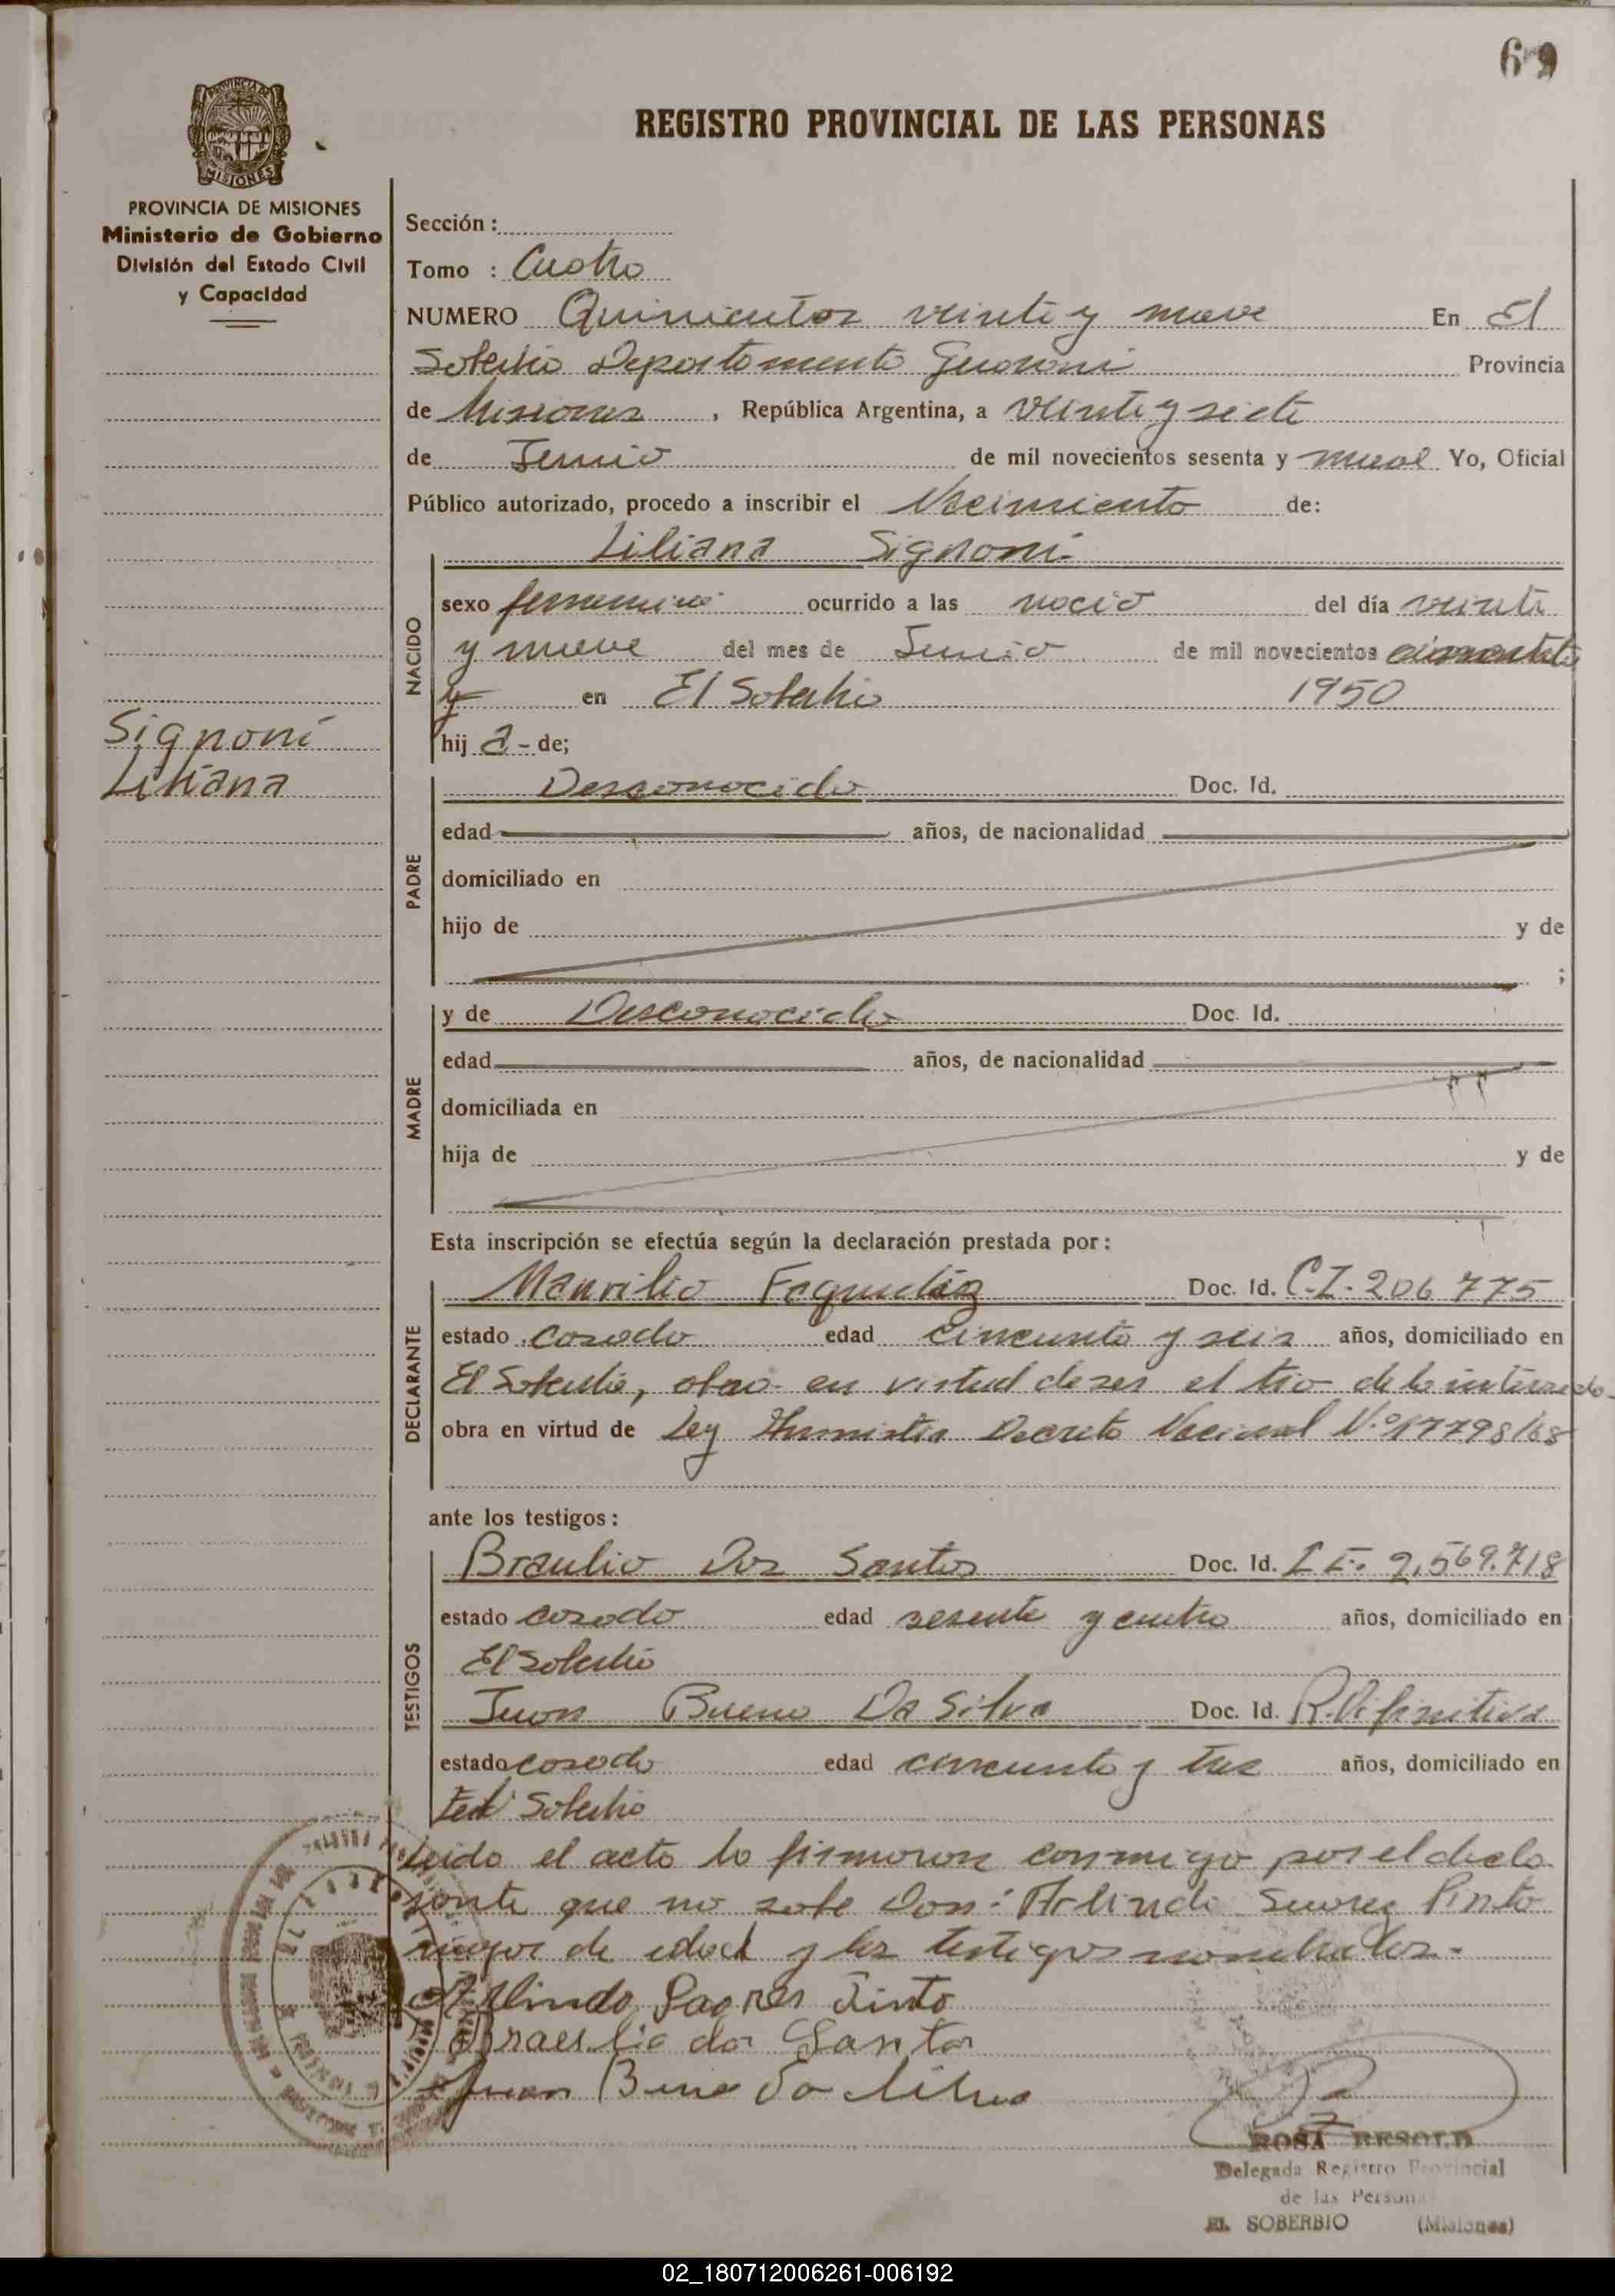 69
PROVINCIA DE
MISIONES
REGISTRO PROVINCIAL DE LAS PERSONAS
PROVINCIA DE MISIONES
Ministerio de Gobierno
División del Estado Civil
y Capacidad
Sección :
Tomo : Cuatro
NUMERO Quinientos veinte y nueve En El
Soberbio Departamento Guarani Provincia
de Misiones , República Argentina, a veinte y siete
de Junio de mil novecientos sesenta y nueve Yo, Oficial
Público autorizado, procedo a inscribir el Nacimiento de:
Liliana Signoni
NACIDO
sexo femenino ocurrido a las nació del día veinte
y nueve del mes de Junio de mil novecientos
y en El Soberbio 1950
hij a - de;
Signoni
Liliana
PADRE
Desconocido Doc. Id.
edad años, de nacionalidad
domiciliado en
hijo de y de
;
MADRE
y de Desconocido Doc. Id.
edad años, de nacionalidad
domiciliada en
hija de y de
Esta inscripción se efectúa según la declaración prestada por :
DECLARANTE
Maurilio Fagundez Doc. Id. C.I. 206 775
estado casado edad cincuenta y seis años, domiciliado en
El Soberbio, obra en virtud de ser el tio de la interesada
obra en virtud de Ley Amnistia Decreto Nacional N.º 17798/68
ante los testigos :
TESTIGOS
Braulio Dos Santos Doc. Id. I E. 2,569.718
estado casado edad sesenta y cuatro años, domiciliado en
El Soberbio
Juan Bueno Da Silva Doc. Id. R. Difinitiva
estado casado edad cincuenta y tres años, domiciliado en
El Soberbio
Leido el acto lo firmaron conmigo por el decla-
rante que no sabe Don: Arlindo Suarez Pinto
mayor de edad y los testigos nombrados.-
Arlindo Soares Pinto
Braeslio do Santo
Juan Buno da Silva
ROSA RESOLD
Delegada Registro Provincial
de las Personas
EL SOBERBIO (Misiones)
02_180712006261-006192